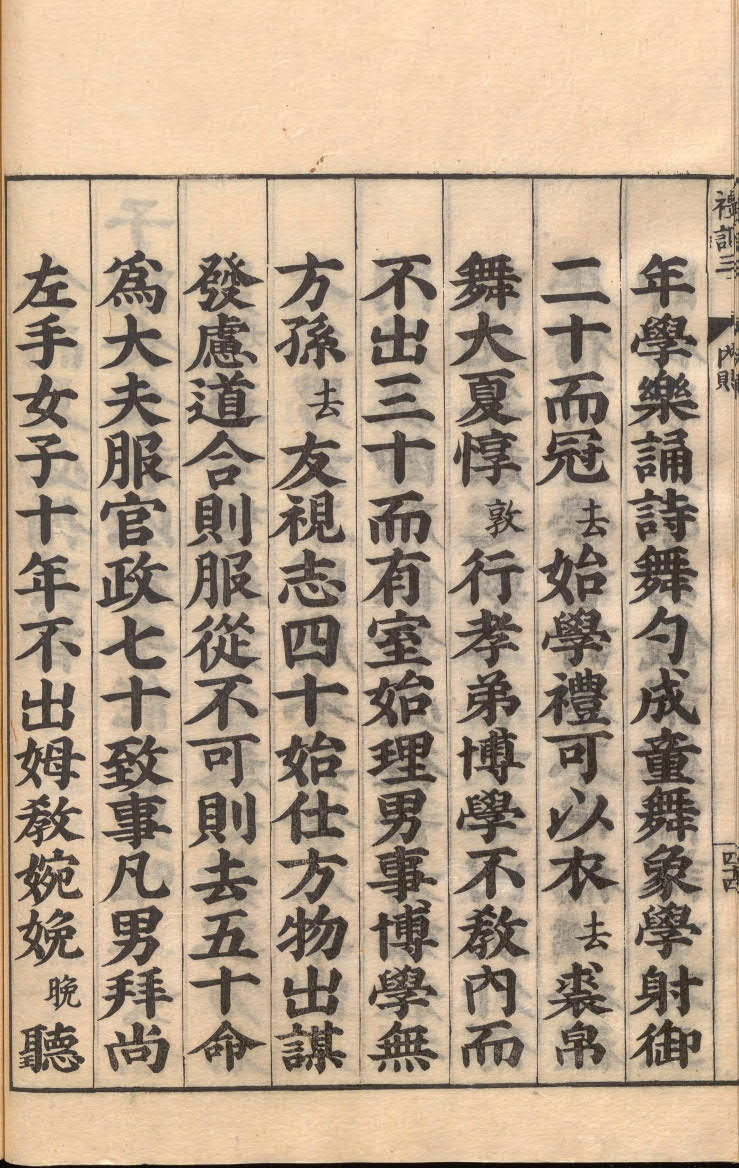 年學樂誦詩舞勺成童舞象學射御
二十而冠去始學禮可以衣去裘帛
舞大夏惇敦行孝弟博學不教內而
不出三十而有室始理男事博學無
方孫去友視志四十始仕方物出謀
發慮道合則服從不可則去五十命
爲大夫服官政七十致事凡男拜尚
左手女子十年不出姆教婉娩晚聽
內則